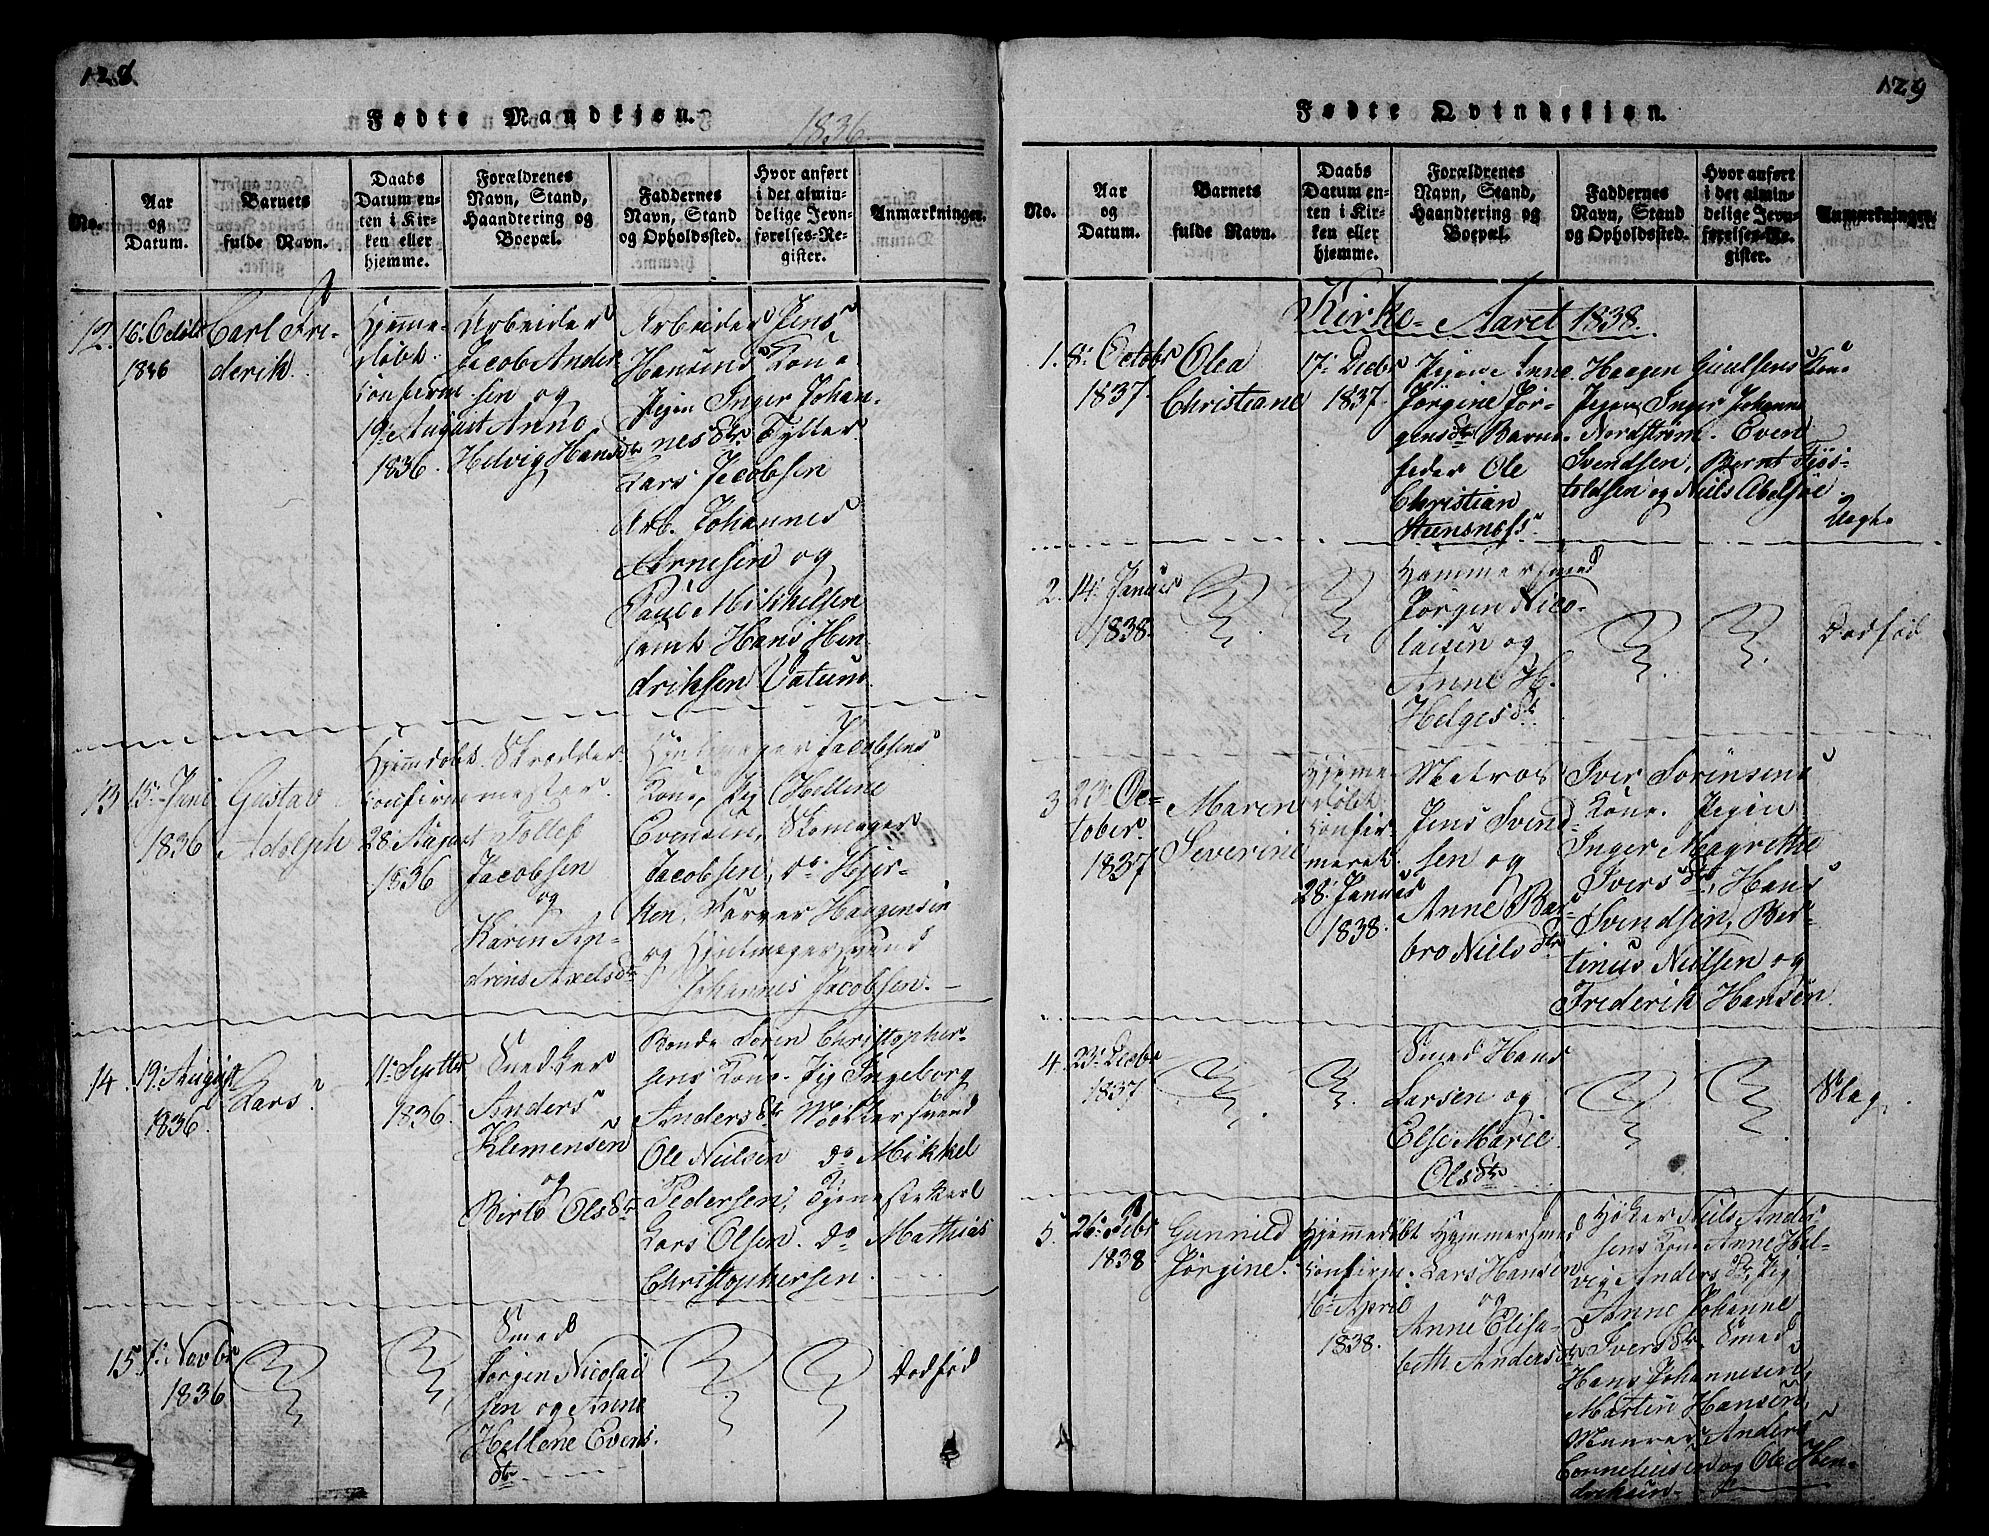 128.
Fødte Mandkjøn.
1836.
No.
Aar og Datum.
Barnets fulde Navn.
Daabs Datum enten i Kirken eller hjemme.
Forældrenes Navn, Stand, Haandtering og Boepæl.
Faddernes Navn, Stand og Opholdssted.
Hvor anført i det almindelige Jevnførelses-Register.
Anmærkninger.
12.
16. Octobr
1836
Carl Fre-
derik.
Hjemme-
døbt
Confirm
19. August
1836.
Arbeider
Jacob Ander
sen og
Anne
Helvig Hansdtr
Arbeider Jens
Hansens Kone
Pigen Inger Johan-
nesdtr Tylter.
Lars Jacobsen
Arb. Johannes
Arnesen og
Poul Mikkelsen
samt Hans Hen-
driksen Vatum.
13
15. Juni
1836
Gustav
Adolph
Hjemdøbt
Confirm
28. August
1836
Skrædder
mester
Tollef
Jacobsen
og
Karen An-
drine Axelsdtr
Hjulmager Jacobsens
Kone, Pig Hellene
Evensen, Skomager
Jacobsen, do Hjer-
ken, Farver Haagensen
og Hjulmagersvend
Johannes Jacobsen.
14.
19. August
1836.
Lars
11. Septbr
1836.
Snedker
Anders
Klemensen
og
Birte Olsdtr
Bonde Søren Christopher-
sens Kone. Pig Ingeborg
Andersdtr
Ole Nielsen do Mikkel
Pedersen, Tjenestekarl
Lars Olsen. do Mathias
Christophersen.
15
Novbr
1836
Smed
Jørgen Nicolai
sen og Anne
Hellene Evens.
dtr
Dødfød
129
Fødte Qvindekjøn.
No.
Aar og Datum.
Barnets fulde Navn.
Daabs Datum enten i Kirken eller hjemme.
Forældrenes Navn, Stand, Haandtering og Boepæl.
Faddernes Navn, Stand og Opholdssted.
Hvor anført i det almindelige Jevnførelses-Register.
Anmærkninger.
Kirke-Aaret 1838.
1.
8. Octobr
1837.
Olea
Christiane
17. Decbr
1837.
Pigen Anne
Jørgine Jør-
gensdtr Barne-
fader Ole
Christian
Steensnæss
Haagen Gulsens Kone
Pigen Inger Johanne
Nordstrøm. Even
Svendsen, Bernt Tjøs-
toldsen og Niels Abelsøe.
Uægte
2.
14. Januar
1838.
Hammersmed
Jørgen Nico-
laisen og
Anne H.
Helgesdtr
Dødfød
3
23. Oc-
tober
1837
Maren
Severine
Hjemme-
døbt
Confir-
meret
28. Januar
1838.
Matros
Jens Svend-
sen og
Anne Bar-
bro Nielsdtr
Iver Sørensens
Kone. Pigen
Inger Magrethe
Iversdtr, Hans
Svendsen, Ber-
tinus Nielsen og
Frederik Hansen.
4.
23. Decbr
1837
Smed Hans
Larsen og
Else Marie
Olsdtr
5.
26. Febr
1838
Gunnild
Jørgine.
Hjemmedøbt
Confirm.
16. April
1838.
Hammersmed
Lars Hansen
og
Anne Elisa-
beth Andersdtr
Høker Niels Ander-
sens Kone Anne Hel-
vig Andersdtr, Pig
Anne Johanne
Iversdtr. Smed
Hans Johannesen
Martin Hansen,
Anders
Corneliusen og Ole Hen-
driksen.